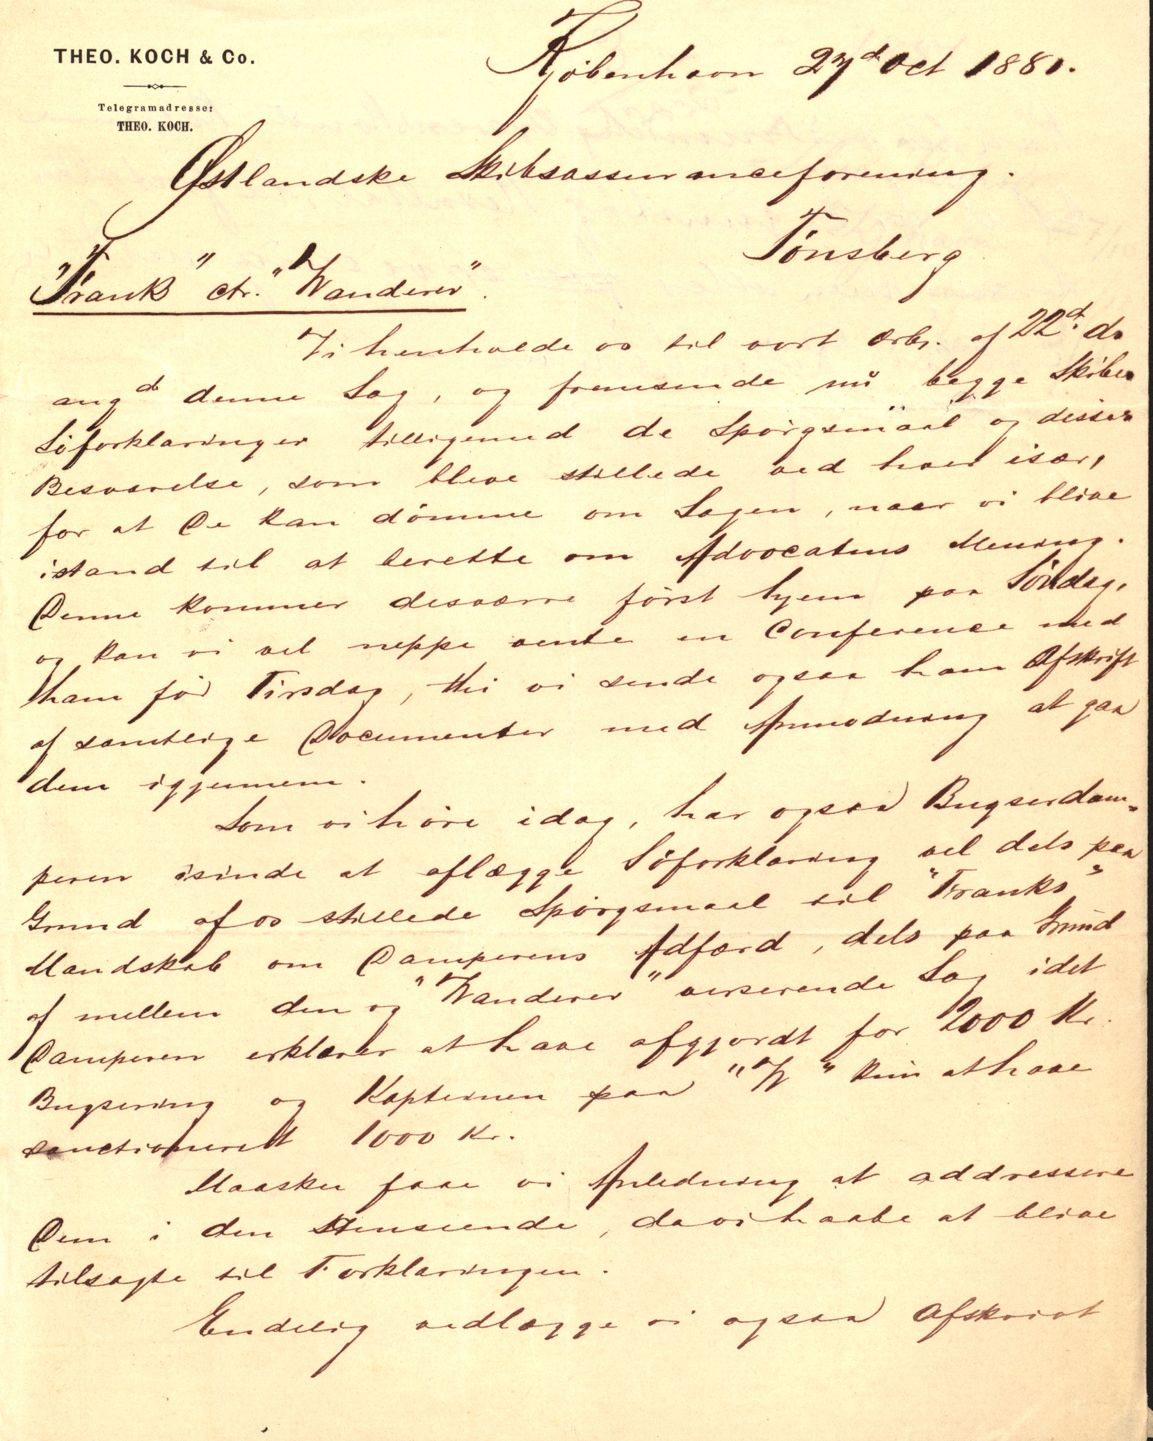 THEO. KOCH & Co.
Telegramadresse:
THEO. KOCH.
Kjøbenhavn 27d Oct 1880.
Østlandske Skibsassuranceforening.
Tönsberg
"Frank" ctr. "Wanderer".
Vi henholde os til vort ærbr. af 22d. ds
angd denne Sag, og fremsende nu begge Skibes
Söforklaringer tilligemed de Spörgsmaal og disses
Besvarelse, som bleve stillede ved hver især,
for at De kan dömme om Sagen, naar vi blive
istand til at berette om Advocatens Mening.
Denne kommer desværre først hjem paa Söndag,
og kan vi vel neppe vente en Conference med
ham før Tirsdag, thi vi sende ogsaa ham Afskrift
af samtlige Documenter med Anmodning at gaa
dem igjennem.
Som vi höre idag, har ogsaa Bugserdam-
peren isinde at aflægge Söforklaring vel dels paa
Grund af os stillede Spörgsmaal til "Franks"
Mandskab om Damperens Adfærd, dels paa Grund
af mellem den og "Wanderer" verserende Sag idet
Damperen erklærer at have afgjordt for 2000 Kr.
Bugsering og Kapteinen paa "W" kun at have
sanctioneret 1000 Kr.
Maaskee faae vi Anledning at addressere
Dem i den Henseende, da vi haabe at blive
tilsagte til Forklaringen.
Endelig vedlægge vi ogsaa Afskrivt